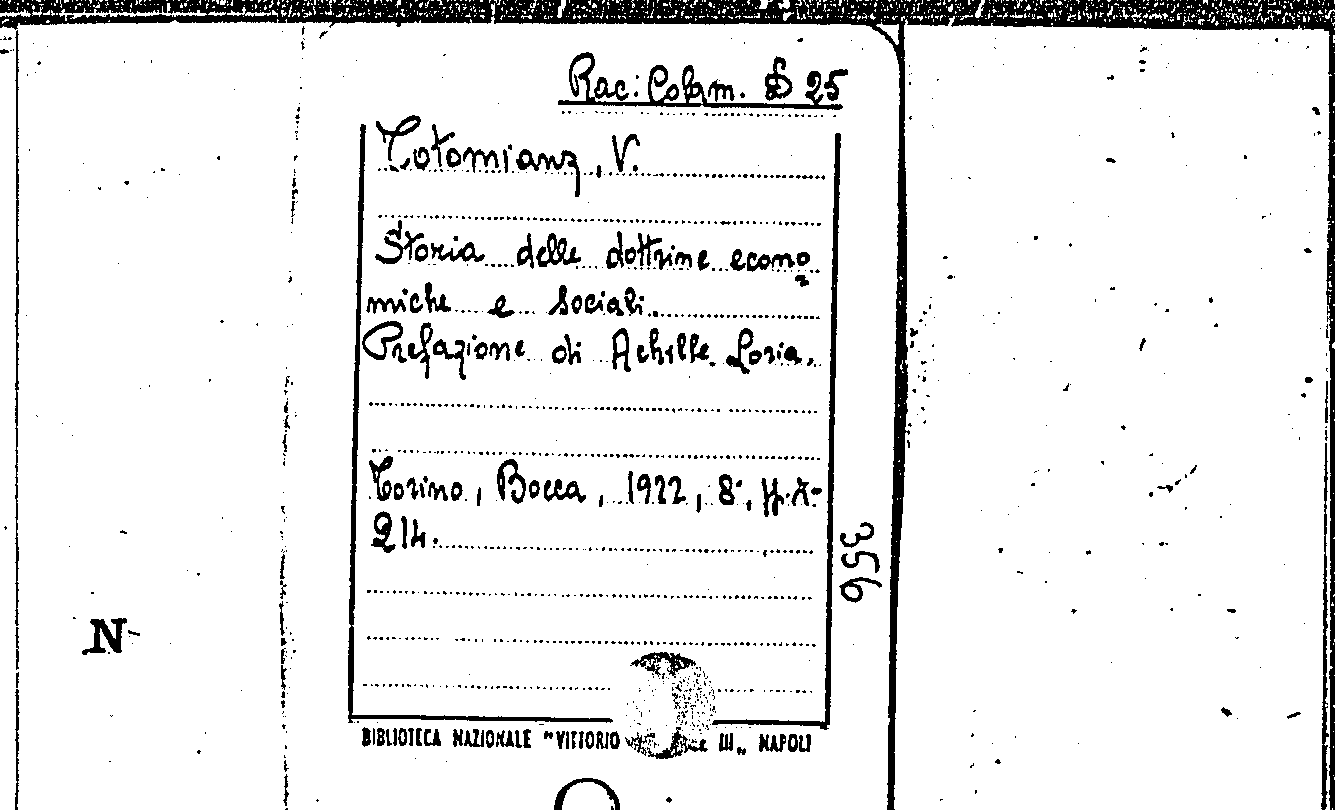 Rac: Colam. D 25
Totomianz, V.
Storia delle dottrine econo
miche e sociali.
Prefazione di Achille Loria.
Torino, Bocca, 1922, 8°, pp. X-
214.
356
N
BIBLIOTECA NAZIONALE "VITTORIO III„ NAPOLI